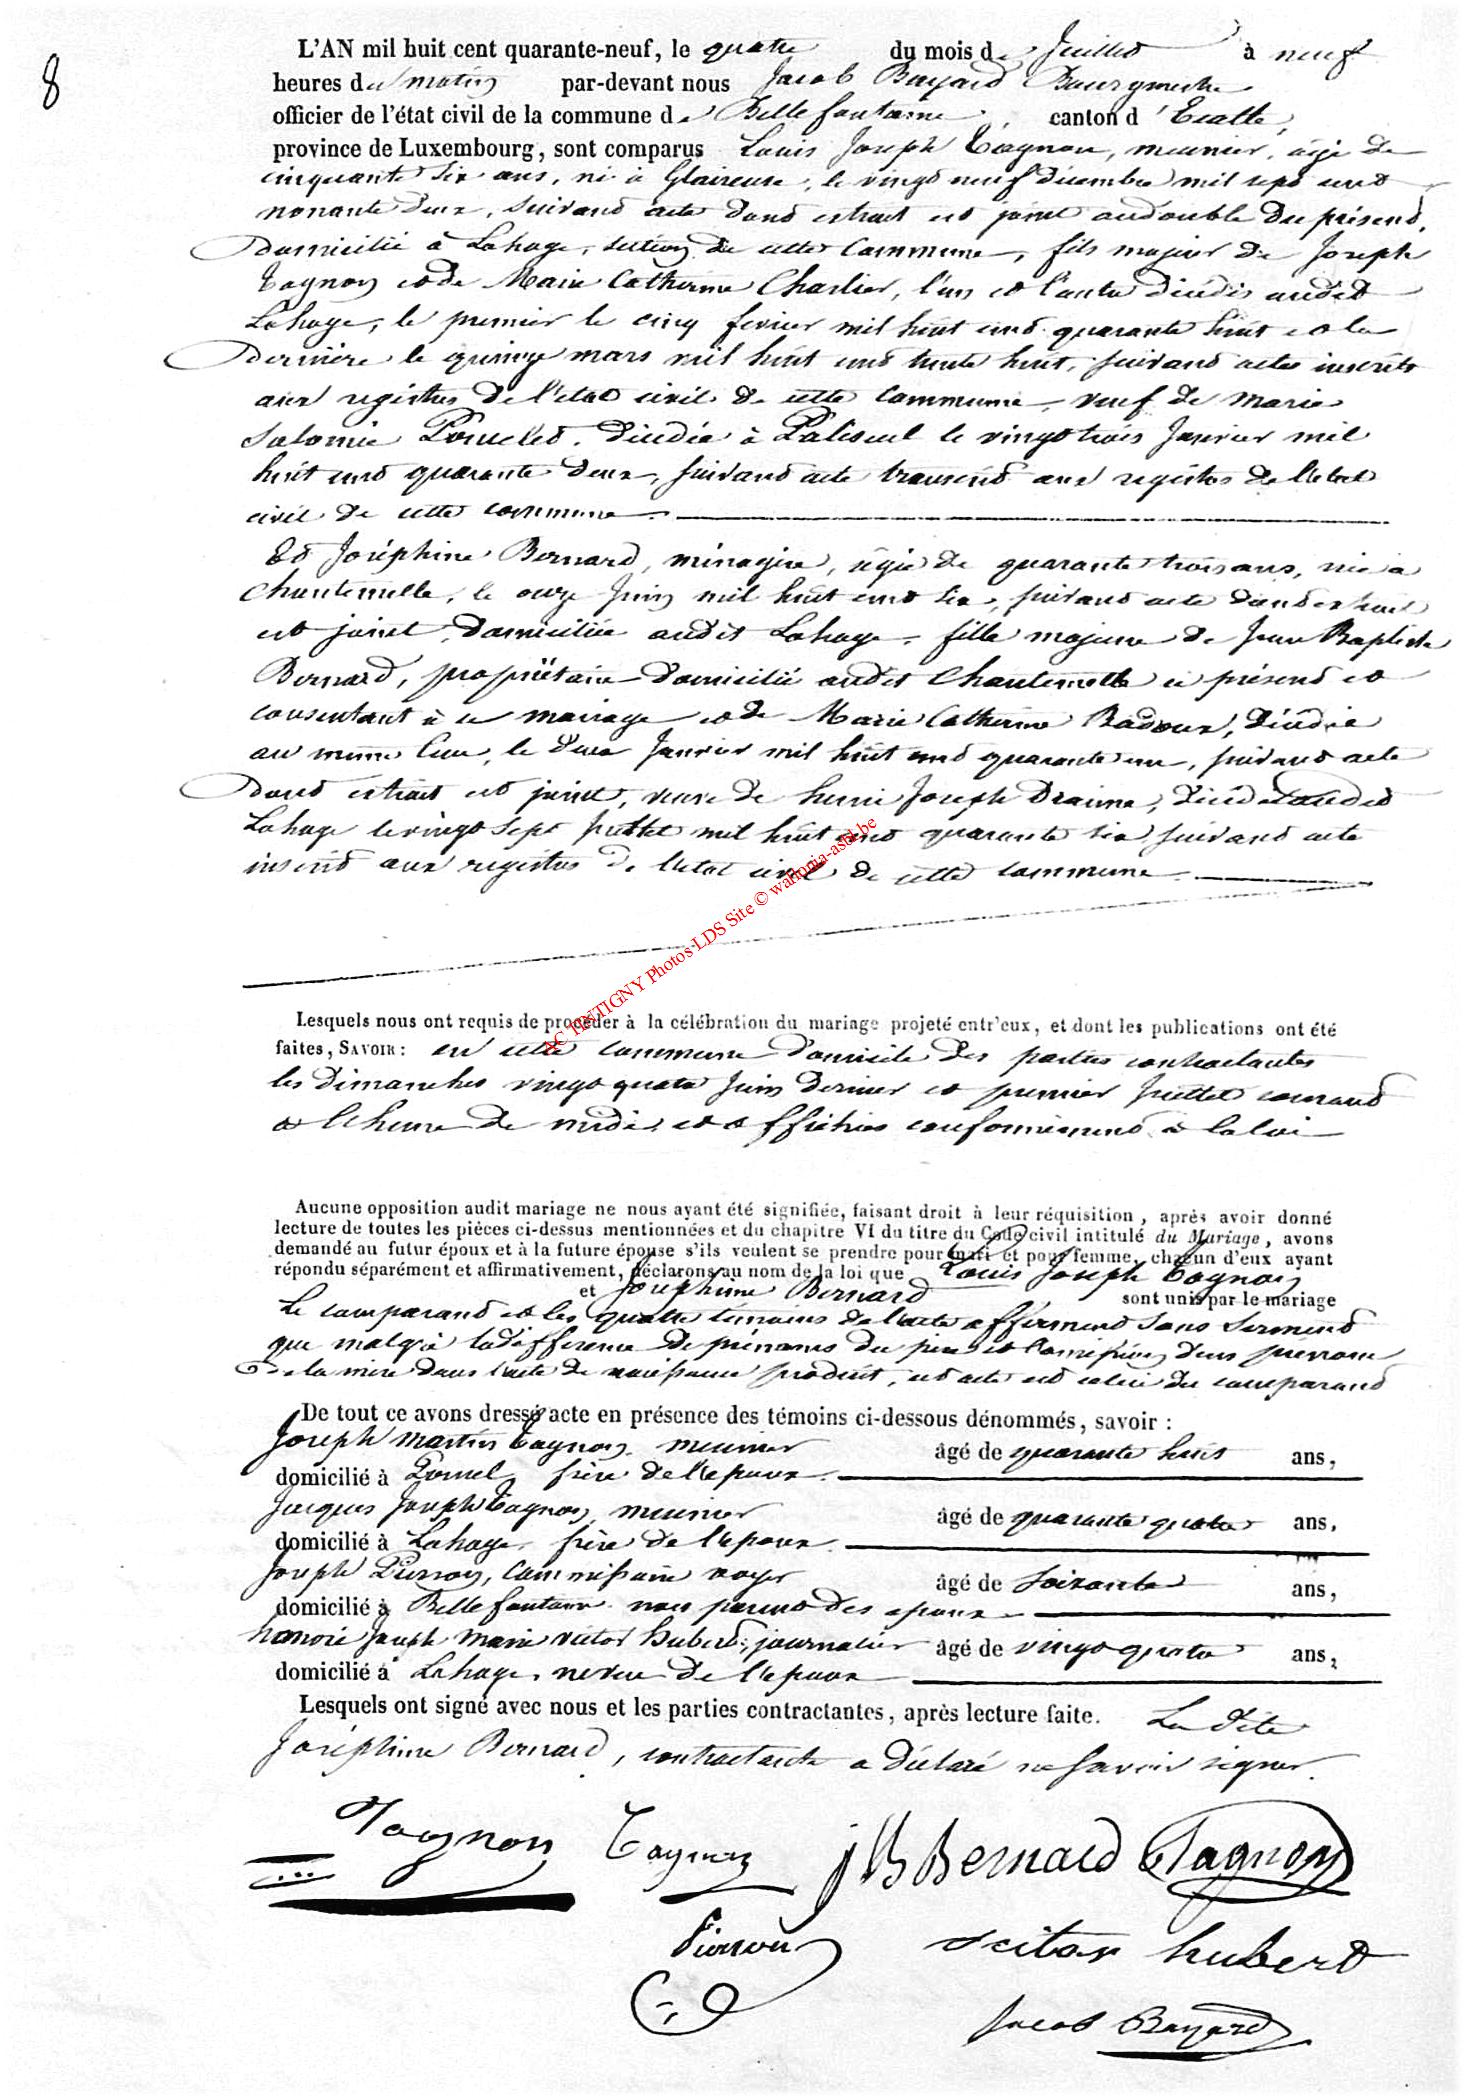 8
L'AN mil huit cent quarante-neuf, le quatre du mois de Juillet à neuf
heures du matin par-devant nous Jacob Bayard Bourgmestre
officier de l'état civil de la commune de Bellefontaine, canton d'Etalle,
province de Luxembourg, sont comparus Louis Joseph Tagnon, meunier, âgé de
cinquante six ans, né à Glaireuse, le vingt neuf décembre mil sept cent
nonante deux, suivant acte dont extrait est joint au double du présent,
domicilié à Lahage, section de cette commune, fils majeur de Joseph
Tagnon et de Marie Catherine Charlier, l'un et l'autre décédés audit
Lahage, le premier le cinq fevrier mil huit cent quarante huit et la
dernière le quinze mars mil huit cent trente huit, suivant actes inscrits
aux registres de l'etat civil de cette commune, veuf de Marie
Salomée décédée à Paliseul le vingt trois Janvier mil
huit cent quarante deux, suivant acte transcrit aux registres de l'etat
civil de cette commune.
Et Joséphine Bernard, ménagère, âgée de quarante trois ans, née à
Chantemelle, le onze Juin mil huit cent six, suivant acte dont extrait
est joint, domiciliée audit Lahage, fille majeure de Jean Baptiste
Bernard, propriétaire domicilié audit Chantemelle ci présent et
consentant à ce mariage et de Marie Catherine Radoux, décédée
au même lieu, le deux Janvier mil huit cent quarante un, suivant acte
dont extrait est joint, veuve de henri Joseph Draime, décédé audit
Lahage le vingt sept juillet mil huit cent quarante six suivant acte
inscrit aux registres de l'etat civil de cette commune.
AC TINTIGNY Photos LDS Site © wallonia-asbl.be
Lesquels nous ont requis de procéder à la célébration du mariage projeté entr'eux, et dont les publications ont été
faites, SAVOIR: en cette commune domicile des parties contractantes
les Dimanches vingt quatre Juin dernier et premier Juillet courant
à l'heure de midi et affichées conformément à la loi
Aucune opposition audit mariage ne nous ayant été signifiée, faisant droit à leur réquisition, après avoir donné
lecture de toutes les pièces ci-dessus mentionnées et du chapitre VI du titre du Code civil intitulé du Mariage, avons
demandé au futur époux et à la future épouse s'ils veulent se prendre pour mari et pour femme, chacun d'eux ayant
répondu séparément et affirmativement, déclarons au nom de la loi que Louis Joseph Tagnon
et Joséphine Bernard sont unis par le mariage
Le comparant et les quatre témoins de l'acte afferment sans serment
que malgré la différence de prénoms du père et l'omission d'un prénom
de la mère dans l'acte de naissance produit, cet acte est celui du comparant
De tout ce avons dressé acte en présence des témoins ci-dessous dénommés, savoir:
Joseph Martin Tagnon, meunier âgé de quarante huit ans,
domicilié à frère de l'epoux.
Jacques Joseph Tagnon, meunier âgé de quarante quatre ans,
domicilié à Lahage, frère de l'epoux.
Joseph Pierson, commissaire voyer âgé de soixante ans,
domicilié à Bellefontaine non parent des epoux
honoré Joseph Marie victor hubert, journalier âgé de vingt quatre ans,
domicilié à Lahage, neveu de l'epoux
Lesquels ont signé avec nous et les parties contractantes, après lecture faite. La dite
Joséphine Bernard, contractante a déclaré ne savoir signer.
Tagnon Tagnon J B Bernard Tagnon
Pierson victor hubert
Jacob Bayard